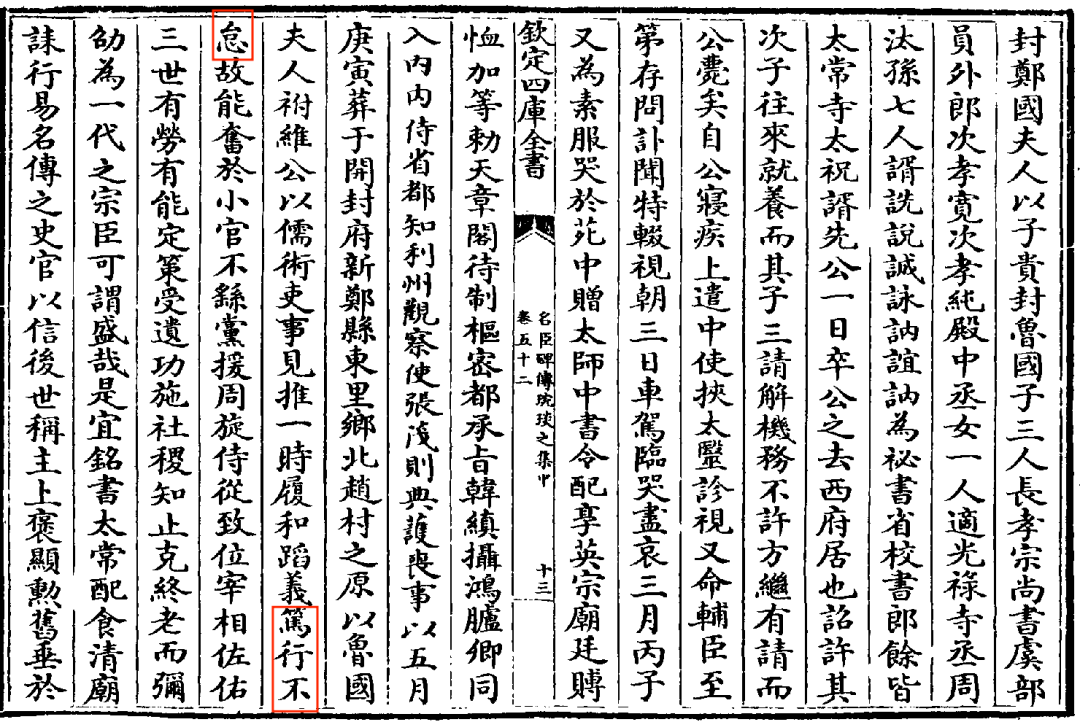 封鄭國夫人以子貴封魯國子三人長孝宗尚書虞部
員外郎次孝寛次孝純殿中丞女一人適光祿寺丞周
汰孫七人諝詵說誠詠訥誼訥為祕書省校書郎餘皆
太常寺太祝諝先公一日卒公之去西府居也詔許其
次子往來就養而其子三請解機務不許方繼有請而
公薨矣自公寢疾上遣中使挾太毉診視又命輔臣至
第存問訃聞特輟視朝三日車駕臨哭盡哀三月丙子
又為素服哭於苑中贈太師中書令配享英宗廟廷賻
欽定四庫全書
名臣碑傳琬琰之集中
卷五十二
十三
恤加等勅天章閣待制樞密都承旨韓縝攝鴻臚卿同
入內內侍省都知利州觀察使張茂則典護喪事以五月
庚寅葬于開封府新鄭縣東里鄉北趙村之原以魯國
夫人祔維公以儒術吏事見推一時履和蹈義篤行不
怠故能奮於小官不繇黨援周旋侍從致位宰相佐佑
三世有勞有能定策受遺功施社稷知止克終老而彌
劭為一代之宗臣可謂盛哉是宜銘書太常配食清廟
誄行易名傳之史官以信後世稱主上褒顯勲舊垂於